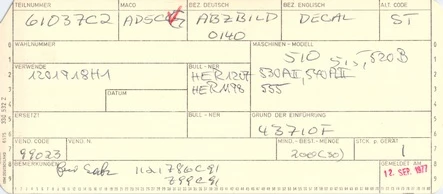 TEILNUMMER MACO BEZ DEUTSCH BEZ ENGLISCH ALT CODE
61037C2 ABZBILD DECAL ST
0140
WAHLNUMMER MASCHINEN - MODELL
510 515, 520B
VERWENDE BULL - NER 530A II, 540A II
1201918H1 HER1207 555
DATUM HER1198
ERSETZT BULL - NER GRUND DER EINFÜHRUNG
43710F
VEND. CODE VEND. N. MIND. - BEST - MENGE STCK p. GERÄT
99023 200(30) 1
BEMERKUNGEN GEMELDET AM
1121786C91 12. SEP. 1977
799C91